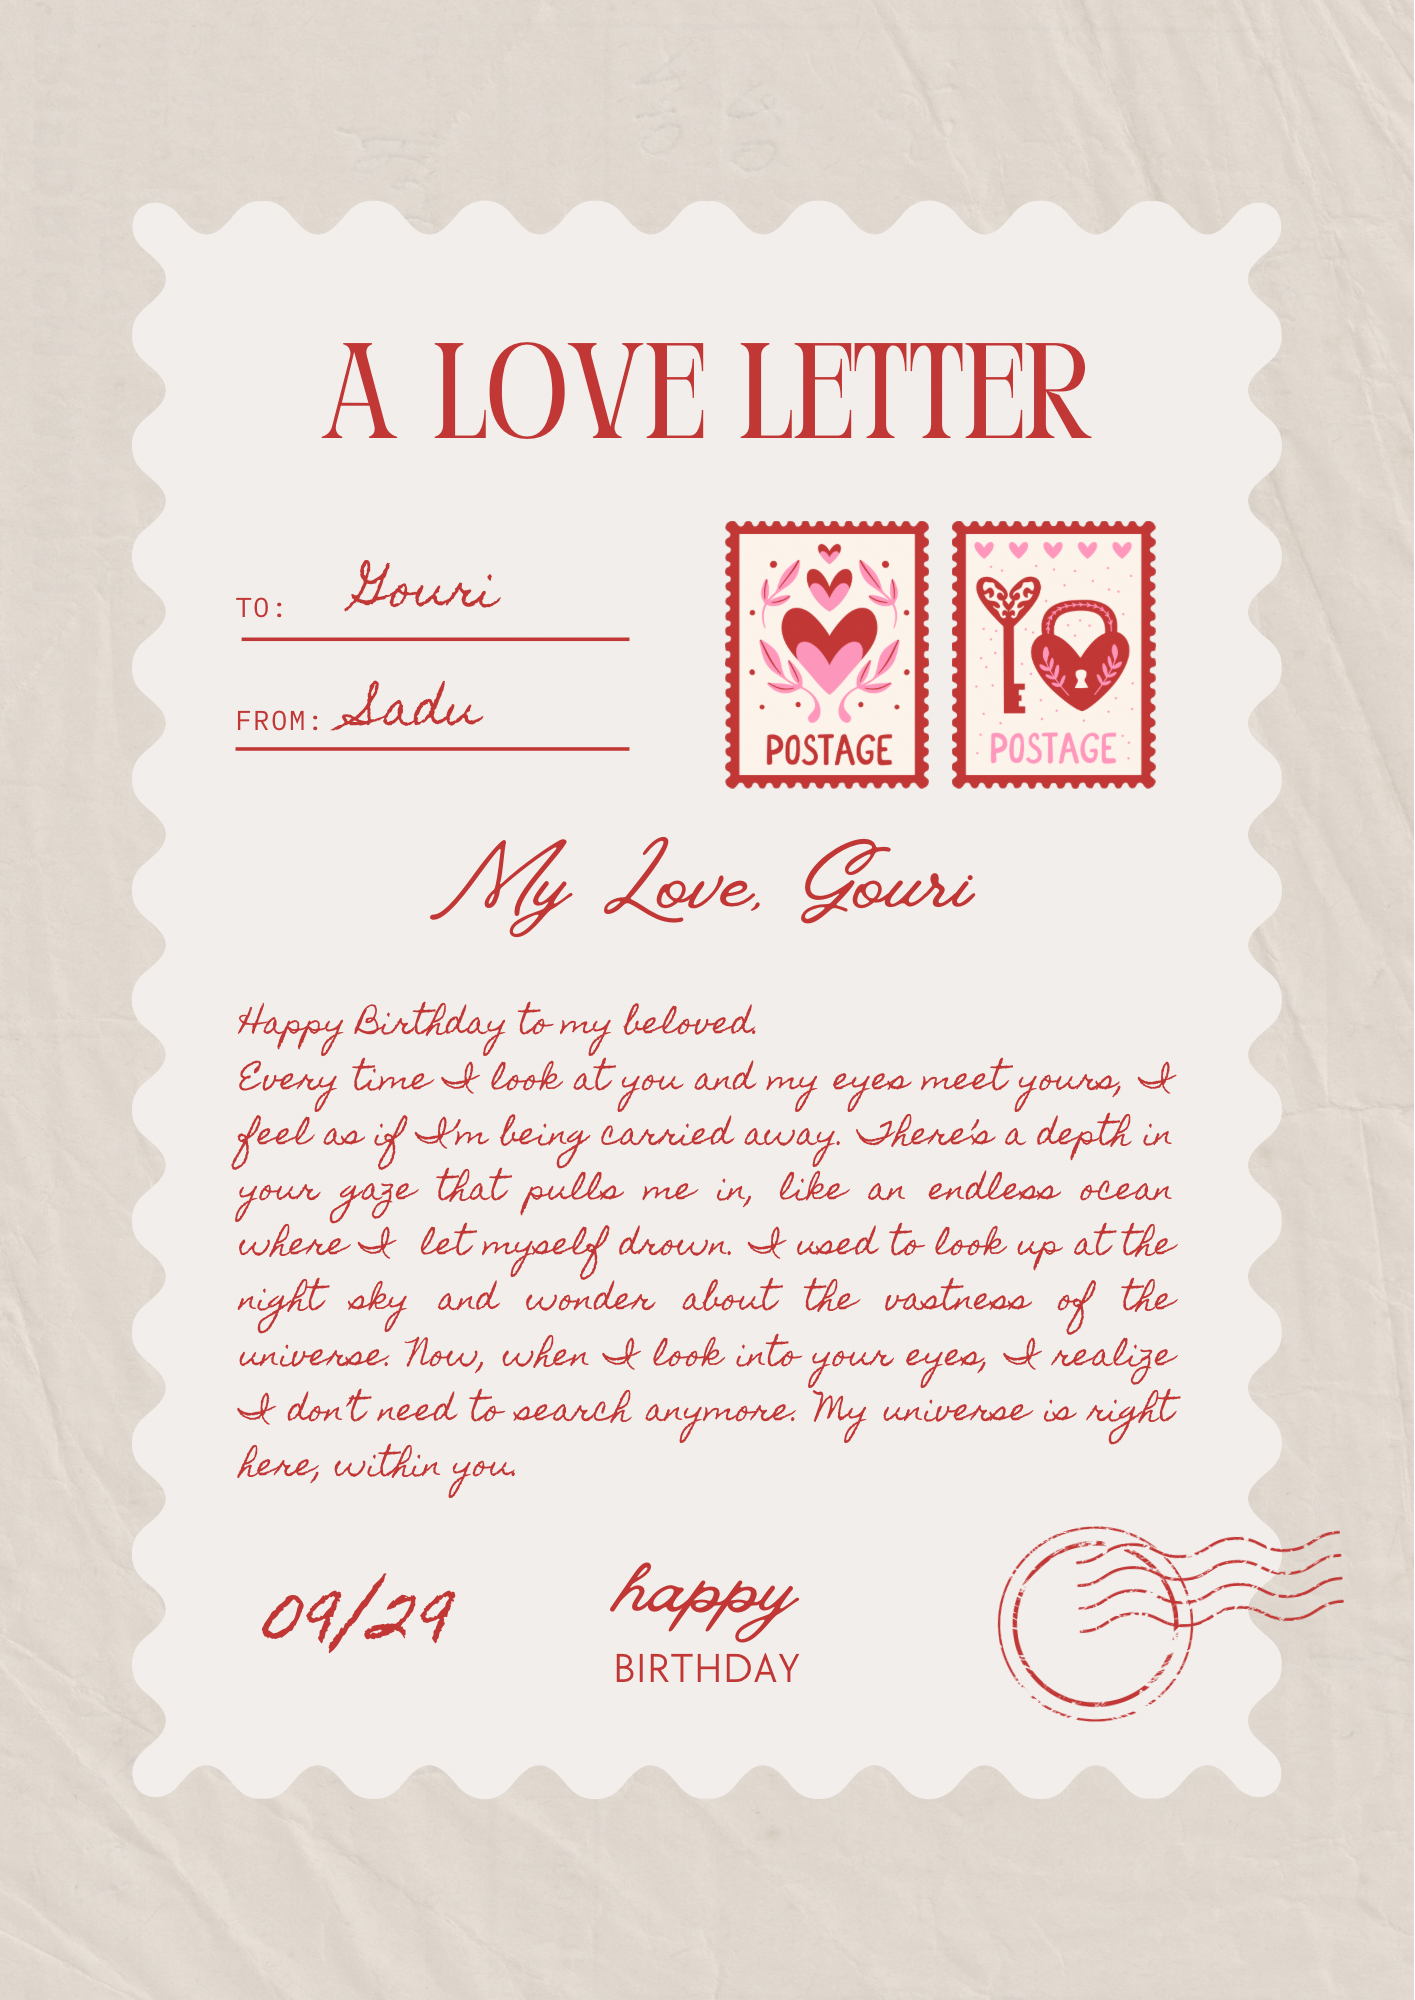 A LOVE LETTER
TO: Gouri
FROM: Sadu
POSTAGE
POSTAGE
My Love, Gouri
Happy Birthday to my beloved.
Every time I look at you and my eyes meet yours, I
feel as if I'm being carried away. There's a depth in
your gaze that pulls me in, like an endless ocean
where I let myself drown. I used to look up at the
night sky and wonder about the vastness of the
universe. Now, when I look into your eyes, I realize
I don't need to search anymore. My universe is right
here, within you.
09/29
happy
BIRTHDAY